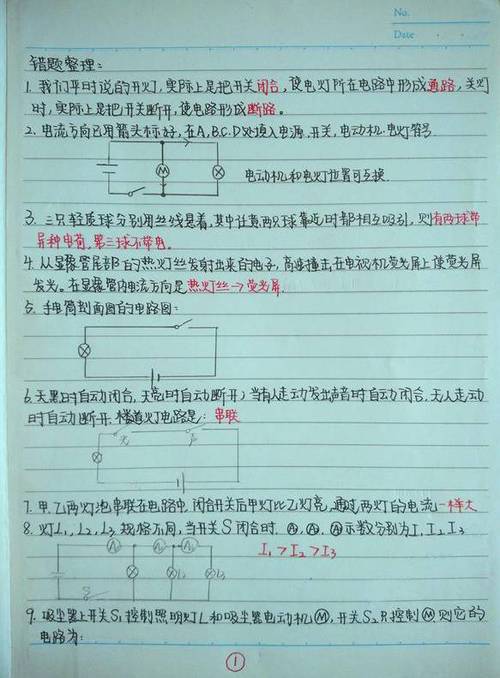 No.
Date
错题整理:
1. 我们平时说的开灯,实际上是把开关闭合,使电灯所在电路中形成通路,关灯
时,实际上是把开关断开,使电路形成断路。
2. 电流方向已用箭头标好,在A,B,C,D处填入电源,开关,电动机.电灯符号.
M
电动机和电灯位置可互换.
3. 三只轻质球分别用丝线悬着,其中任意两只球靠近时都相互吸引,则有两球带
异种电荷,第三球不带电。
4. 从显像管尾部的热灯丝发射出来的电子,高速撞击在电视机荧光屏上使荧光屏
发光。在显像管内电流方向是热灯丝→荧光屏.
5. 手电筒剖面图的电路图:
6. 天黑时自动闭合,天亮时自动断开)当有人走动发出声音时自动闭合.无人走动
时自动断开.楼道灯电路是:串联
光 声
7. 甲.乙两灯泡串联在电路中.闭合开关后甲灯比乙灯亮,通过两灯的电流一样大
8. 灯L₁, L₂, L₃ 规格不同,当开关S闭合时. A₁, A₂, A₃示数分别为I₁, I₂, I₃
A₁ A₂ A₃
I₁ > I₂ > I₃
L₂ L₃
S
9. 吸尘器上开关S₁控制照明灯L和吸尘器电动机M,开关S₂只控制M则它的
电路为:
1